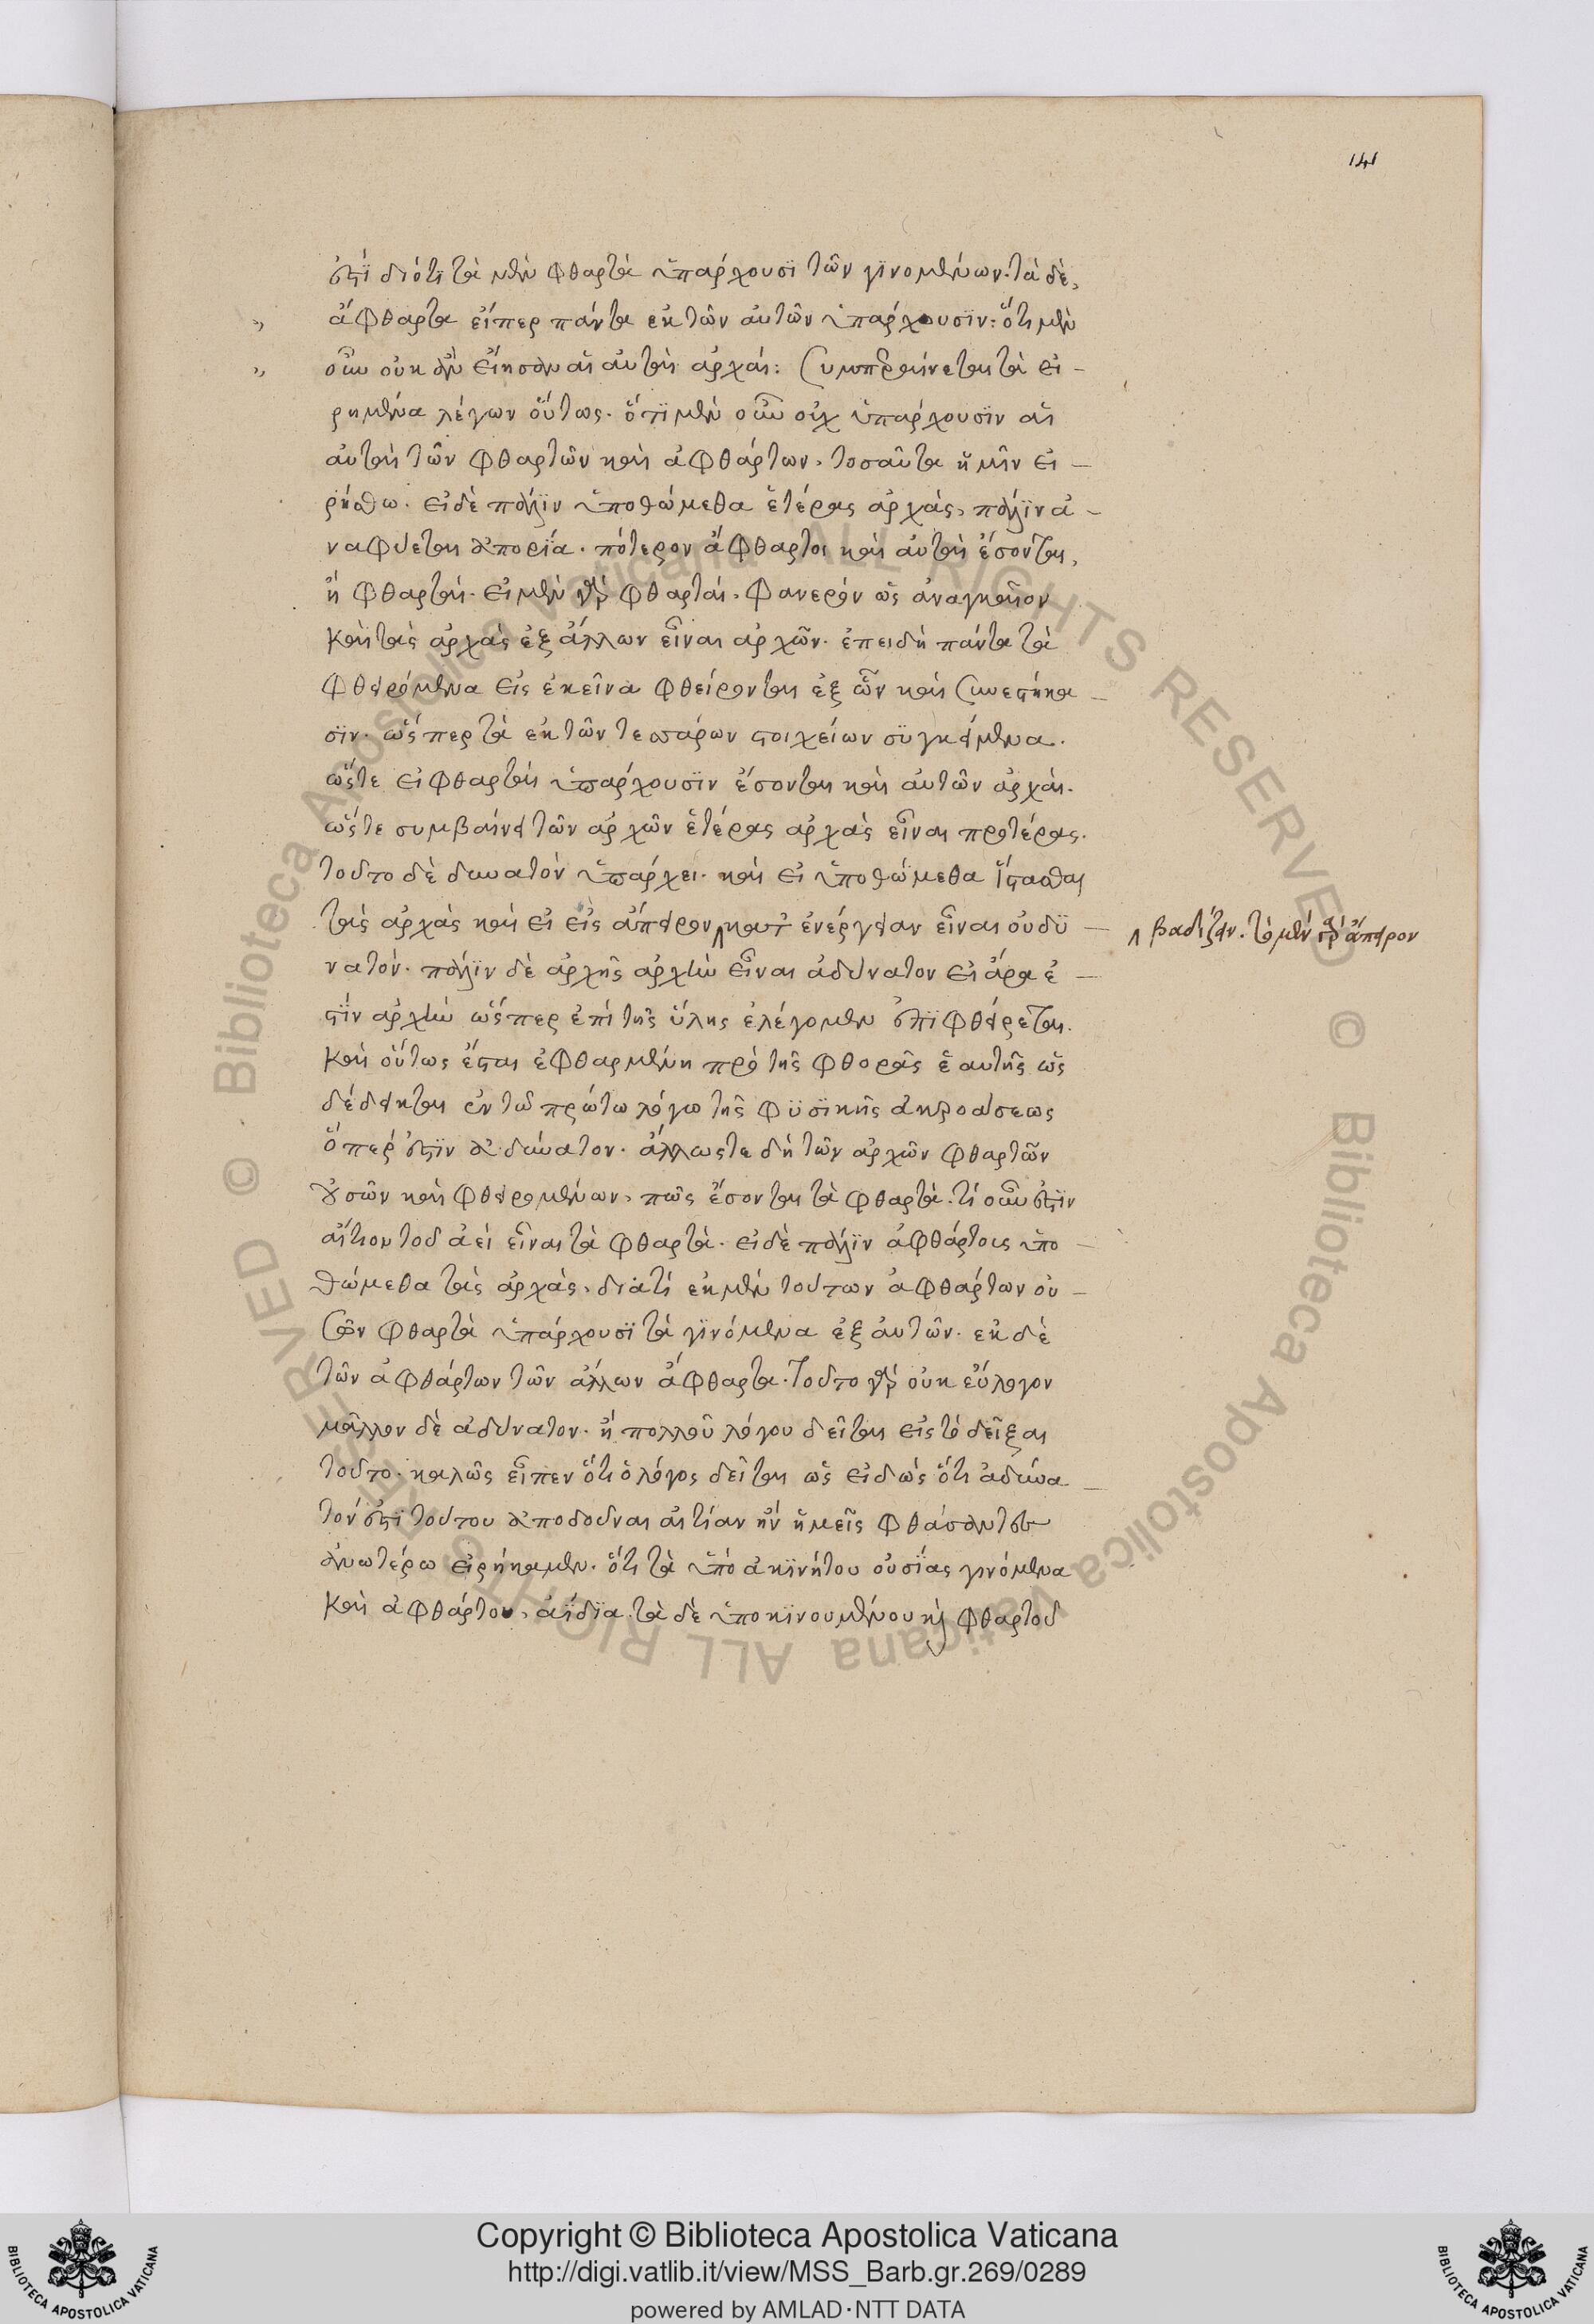 141
ἐστὶ διότι τὰ μὲν φθαρτὰ ὑπάρχουσι τῶν γινομένων. τὰ δὲ,
ἄφθαρτα εἴπερ πάντα ἐκ τῶν αὐτῶν ὑπάρχουσιν: ὅτι μὲν
οὖν οὐκ ἂν εἴησαν αἱ αὐταὶ ἀρχαί: συμπεραίνεται τὰ εἰ-
ρημένα λέγων οὕτως. ὅτι μὲν οὖν οὐχ ὑπάρχουσιν αἱ
αὐταὶ τῶν φθαρτῶν καὶ ἀφθάρτων, τοσαῦτα ἡμῖν εἰ-
ρήσθω. εἰ δὲ πάλιν ὑποθώμεθα ἑτέρας ἀρχὰς, πάλιν ἀ-
ναφύεται ἀπορία. πότερον ἄφθαρτοι καὶ αὐταὶ ἔσονται,
ἢ φθαρταί. εἰ μὲν γὰρ φθαρταί, φανερὸν ὡς ἀναγκαῖον
καὶ τὰς ἀρχὰς ἐξ ἄλλων εἶναι ἀρχῶν. ἐπειδὴ πάντα τὰ
φθειρόμενα εἰς ἐκεῖνα φθείρονται ἐξ ὧν καὶ συνεστήκα-
σιν. ὥσπερ τὰ ἐκ τῶν τεσσάρων στοιχείων συγκείμενα.
ὥστε εἰ φθαρταὶ ὑπάρχουσιν ἔσονται καὶ αὐτῶν ἀρχαί.
ὥστε συμβαίνει τῶν ἀρχῶν ἑτέρας ἀρχὰς εἶναι προτέρας.
τοῦτο δὲ δυνατὸν ὑπάρχει. καὶ εἰ ὑποθώμεθα ἵστασθαι
τὰς ἀρχὰς καὶ εἰ εἰς ἄπειρον ʌ κατ ἐνέργειαν εἶναι οὐ δυ-
ʌ βαδίζειν. τὸ μὲν γὰρ ἄπειρον
νατόν. πάλιν δὲ ἀρχῆς ἀρχὴν εἶναι ἀδύνατον εἰ ἄρα ἐ-
στὶν ἀρχὴν ὥσπερ ἐπὶ τῆς ὕλης ἐλέγομεν ἐπὶ φθείρεται.
καὶ οὕτως ἔσται ἐφθαρμένη πρὸ τῆς φθορᾶς ἑαυτῆς ὡς
δέδεικται ἐν τῷ πρώτῳ λόγῳ τῆς φυσικῆς ἀκροάσεως
ὅπερ ἐστὶν ἀδύνατον. ἄλλως τε δὴ τῶν ἀρχῶν φθαρτῶν
οὐσῶν καὶ φθειρομένων, πῶς ἔσονται τὰ φθαρτά. τί οὖν ἐστὶν
αἴτιον τοῦ ἀεὶ εἶναι τὰ φθαρτά. εἰ δὲ πάλιν ἀφθάρτους ὑπο-
θώμεθα τὰς ἀρχὰς, διατί ἐκ μὲν τούτων ἀφθάρτων οὐ-
σῶν φθαρτὰ ὑπάρχουσι τὰ γινόμενα ἐξ αὐτῶν. ἐκ δὲ
τῶν ἀφθάρτων τῶν ἄλλων ἄφθαρτα. τοῦτο γὰρ οὐκ εὔλογον
μᾶλλον δὲ ἀδύνατον. ἢ πολλοῦ λόγου δεῖται εἰς τὸ δεῖξαι
τοῦτο. καλῶς εἶπεν ὅτι ὁ λόγος δεῖται ὡς εἰδὼς ὅτι ἀδύνα-
τόν ἐστι τούτου ἀποδοῦναι αἰτίαν ἣν ἡμεῖς φθάσαντες
ἀνωτέρω εἰρήκαμεν. ὅτι τὰ ὑπὸ ἀκινήτου οὐσίας γινόμενα
καὶ ἀφθάρτου, ἀΐδια. τὰ δὲ ὑπὸ κινουμένου καὶ φθαρτοῦ